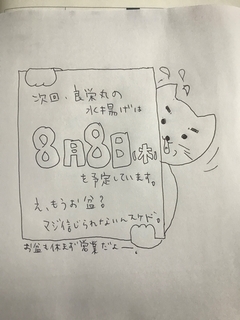 次回、良栄丸の
水揚げは
8月8日(木)
を予定しています。
え、もうお盆?
マジ信じられないんスケド。
お盆も休まず営業だよ